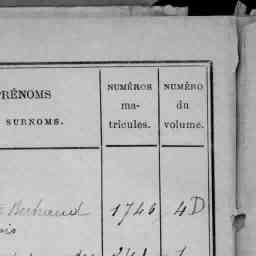 PRÉNOMS
SURNOMS.
NUMÉROS
ma-
tricules.
NUMÉRO
du
volume.
Bertrand 1746 4D
ois